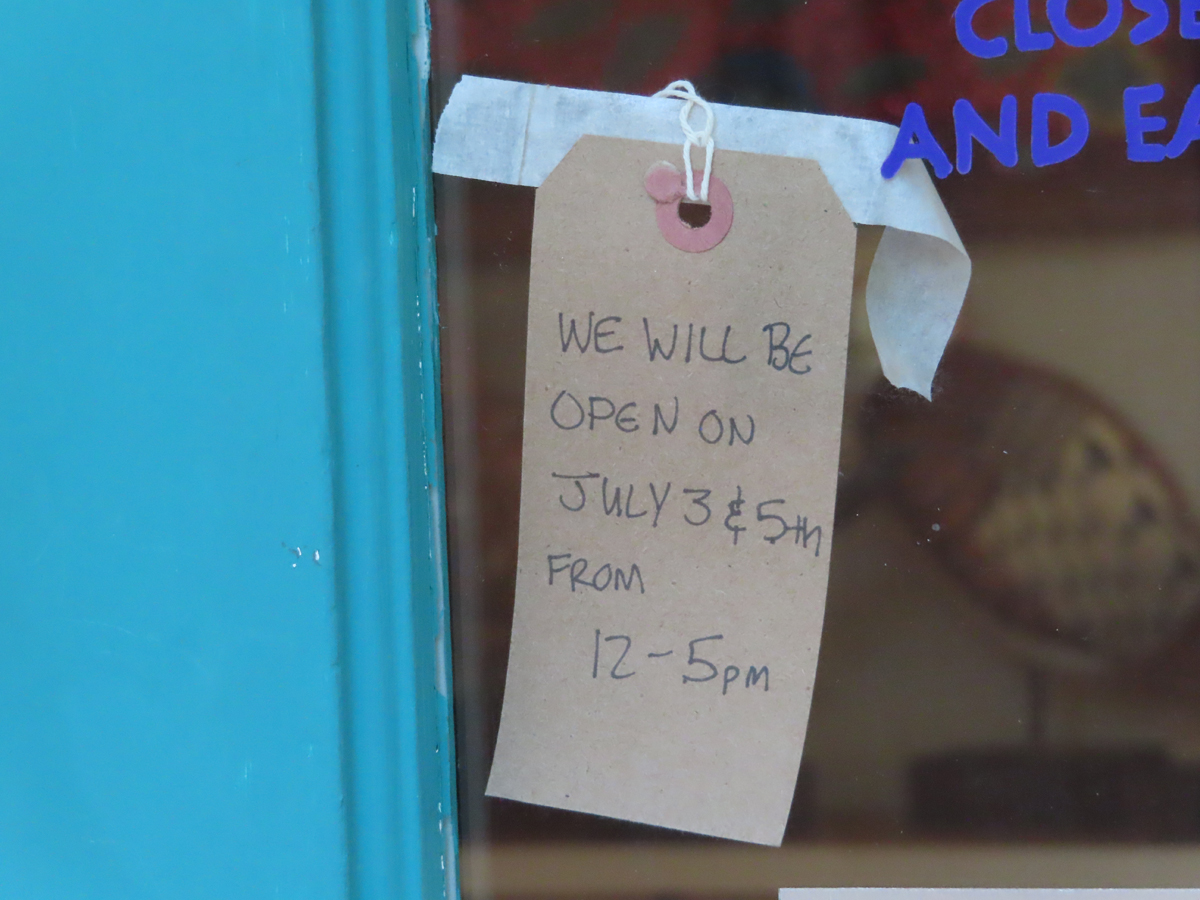 CLOSE
AND EA
WE WILL BE
OPEN ON
JULY 3 & 5TH
FROM
12-5PM